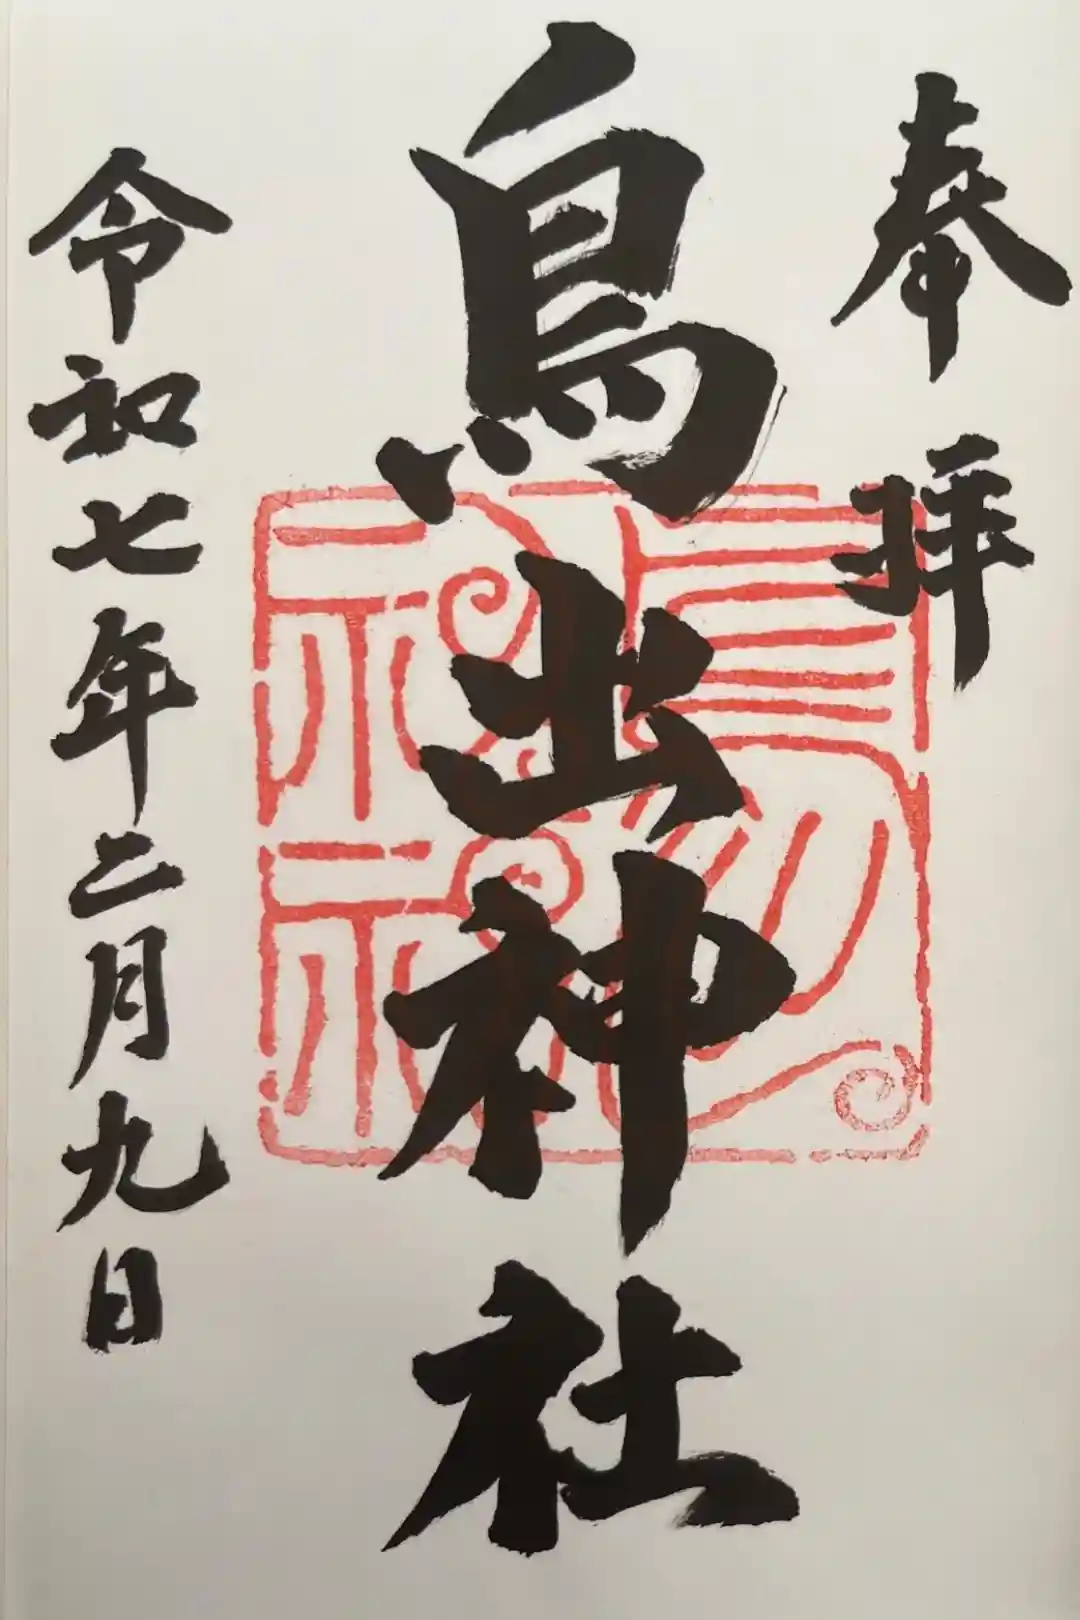 奉拝
鳥出神社
令和七年二月九日